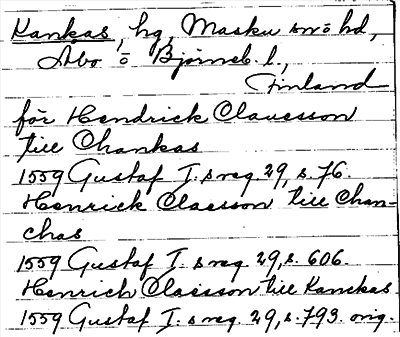 Kankas, hg, Masku sn o hd,
Åbo o Björneb. l.,
Finland
för Hendrick Clauesson
till Chankas
1559 Gustaf I. s reg. 29, s. 76.
Henrick Claesson till Chan-
chas
1559 Gustaf I. s reg. 29, s. 606.
Henrich Claesson till Kanckas
1559 Gustaf I. s reg. 29, s. 793. orig.